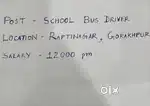 POST - SCHOOL BUS DRIVER
LOCATION - RAPTINAGAR, GORAKHPUR
SALARY - 12000 pm
OLX